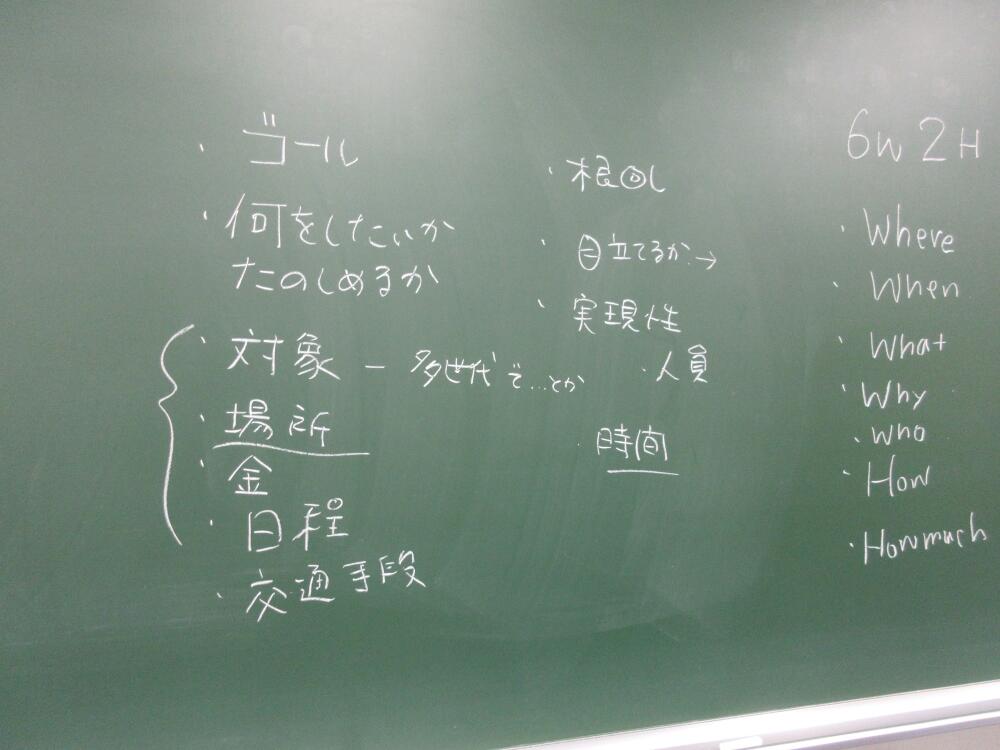 ・ゴール
・何をしたいか
たのしめるか
・対象 ー 多世代で…とか
・場所
・金
・日程
・交通手段
・根回し
・目立てるか→
・実現性
・人員
・時間
6W2H
・Where
・When
・What
・Why
・Who
・How
・Howmuch